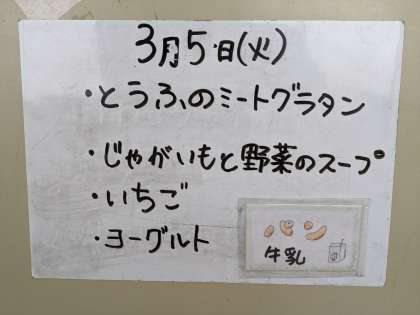 3月5日(火)
・とうふのミートグラタン
・じゃがいもと野菜のスープ
・いちご
・ヨーグルト
パン
牛乳